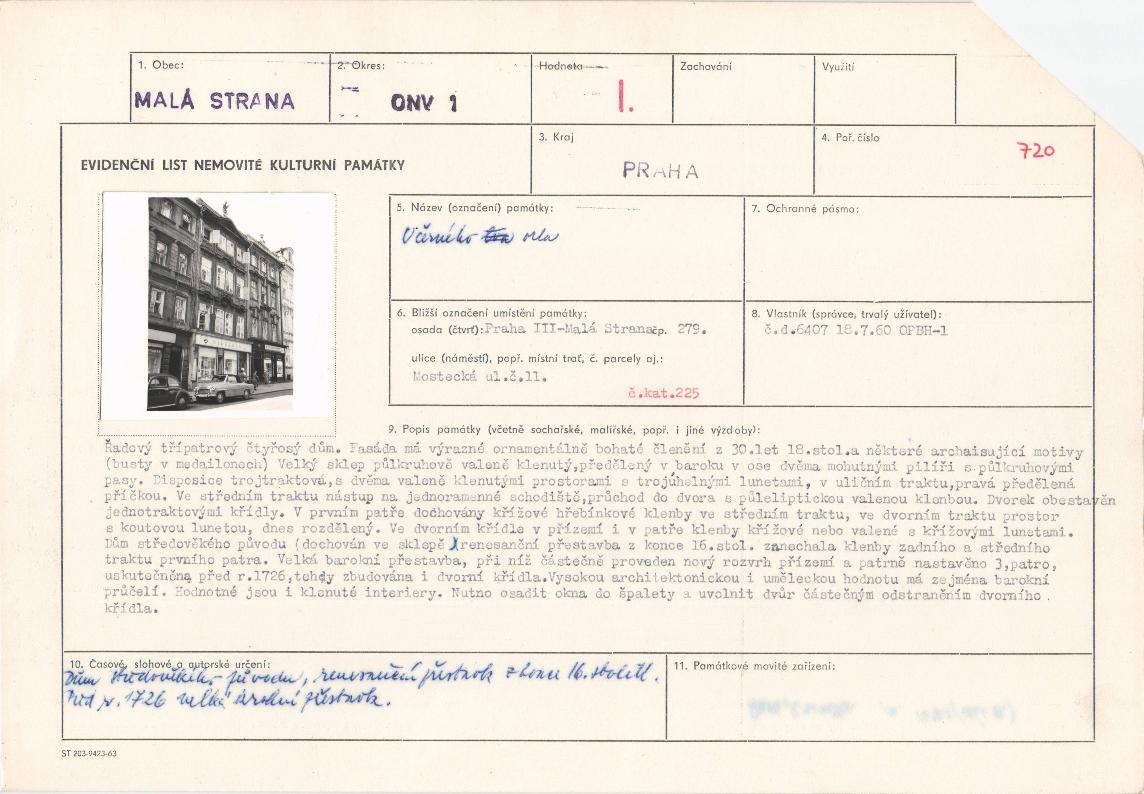 1. Obec:
2. Okres:
Hodnota
Zachování
Využití
MALÁ STRANA
ONV 1
I.
3. Kraj
PRAHA
4. Poř. číslo
720
EVIDENČNÍ LIST NEMOVITÉ KULTURNÍ PAMÁTKY
5. Název (označení) památky:
U černého orla
7. Ochranné pásmo:
6. Bližší označení umístění památky:
osada (čtvrť): Praha III-Malá Strana čp. 279.
ulice (náměstí), popř. místní trať, č. parcely aj.:
Mostecká ul.č.11.
č.kat.225
8. Vlastník (správce, trvalý uživatel):
č.d.6407 18.7.60 OPBH-1
9. Popis památky (včetně sochařské, malířské, popř. i jiné výzdoby):
Řadový třípatrový čtyřosý dům. Fasáda má výrazné ornamentálně bohaté členění z 30.let 18.stol.a některé archaisující motivy
(busty v medailonech) Velký sklep půlkruhově valeně klenutý,předělený v baroku v ose dvěma mohutnými pilíři s půlkruhovými
pasy. Disposice trojtraktová,s dvěma valeně klenutými prostorami s trojúhelnými lunetami, v uličním traktu,pravá předělená
příčkou. Ve středním traktu nástup na jednoramenné schodiště,průchod do dvora s půleliptickou valenou klenbou. Dvorek obestavěn
jednotraktovými křídly. V prvním patře dochovány křížové hřebínkové klenby ve středním traktu, ve dvorním traktu prostor
s koutovou lunetou, dnes rozdělený. Ve dvorním křídle v přízemí i v patře klenby křížové nebo valené s křížovými lunetami.
Dům středověkého původu (dochován ve sklepě )renesanční přestavba z konce 16.stol. zanechala klenby zadního a středního
traktu prvního patra. Velká barokní přestavba, při níž částečně proveden nový rozvrh přízemí a patrně nastavěno 3,patro,
uskutečněna před r.1726,tehdy zbudována i dvorní křídla.Vysokou architektonickou i uměleckou hodnotu má zejména barokní
průčelí. Hodnotné jsou i klenuté interiery. Nutno osadit okna do špalety a uvolnit dvůr částečným odstraněním dvorního
křídla.
10. Časové, slohové a autorské určení:
Dům středověkého původu, renesanční přestavba z konce 16. století.
Před r. 1726 velká barokní přestavba.
11. Památkové movité zařízení:
ST 203-9423-63